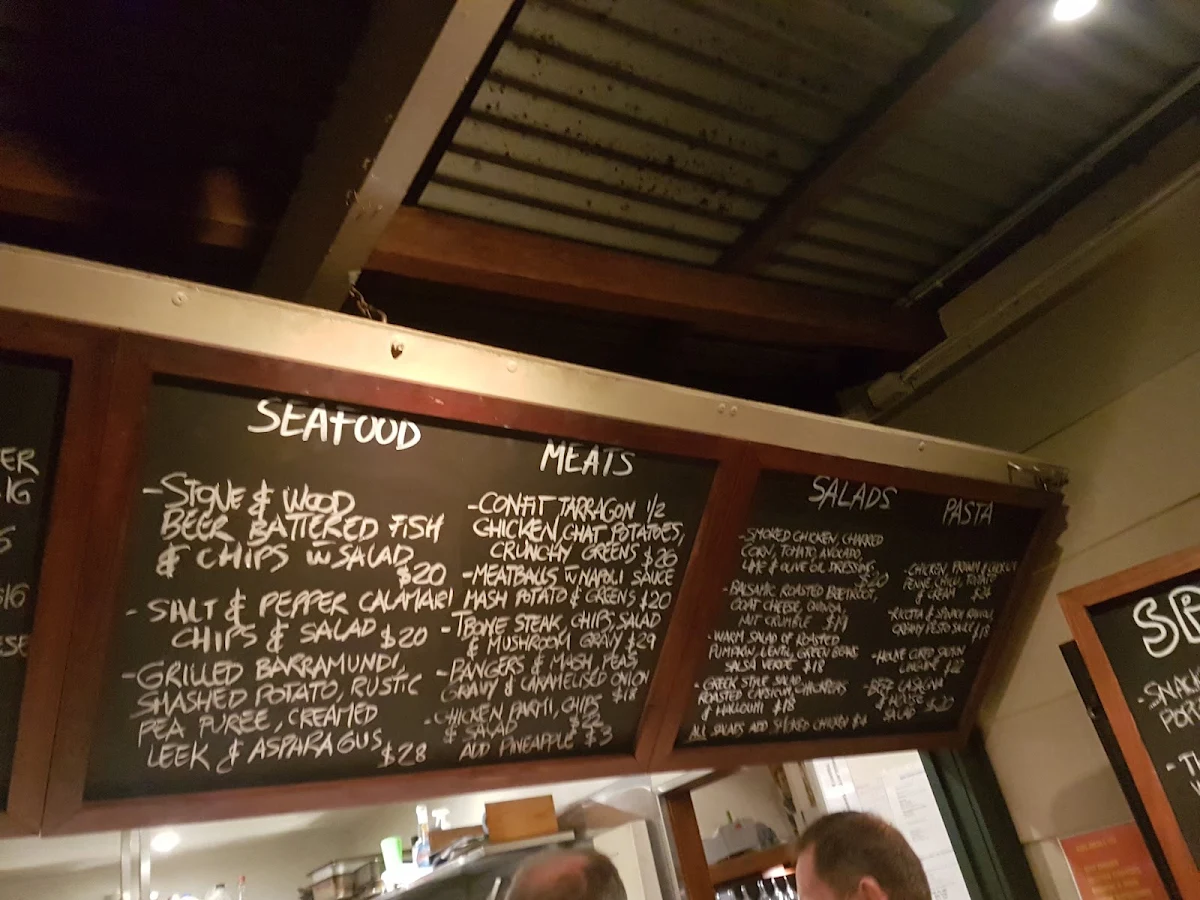 ER
SEAFOOD
-STONE & WOOD
BEER BATTERED FISH
& CHIPS W SALAD
$20
- SALT & PEPPER CALAMARI
CHIPS & SALAD $20
-GRILLED BARRAMUNDI,
SMASHED POTATO, RUSTIC
PEA PUREE, CREAMED
LEEK & ASPARAGUS $28
MEATS
-CONFIT TARRAGON 1/2
CHICKEN, CHAT POTATOES,
CRUNCHY GREENS $26
-MEATBALLS W NAPOLI SAUCE
MASH POTATO & GREENS $20
-TBONE STEAK, CHIPS, SALAD
& MUSHROOM GRAVY $29
-BANGERS & MASH, PEAS,
GRAVY & CARAMELISED ONION
$18
-CHICKEN PARMI, CHIPS
& SALAD $22
ADD PINEAPPLE $3
SALADS
-SMOKED CHICKEN, CHARRED
CORN, TOMATO AVOCADO,
LIME & OLIVE OIL DRESSING
$20
-BALSAMIC ROASTED BEETROOT,
GOAT CHEESE, QUINOA,
NUT CRUMBLE $19
-WARM SALAD OF ROASTED
PUMPKIN, LENTIL, GREEN BEANS
SALSA VERDE $18
-GREEK STYLE SALAD
ROASTED CAPSICUM, CHICKPEAS
& HALLOUMI $18
ALL SALADS ADD SMOKED CHICKEN $4
PASTA
-CHICKEN, PRAWN &
PENNE CHILLI, TOMATO
& CREAM $24
-RICOTTA & SPINACH RAVIOLI,
CREAMY PESTO SAUCE $18
-HOUSE CURED SALMON
LINGUINE $22
-BEEF LASAGNA
& HOUSE
SALAD $20
SP
-SNA
POR